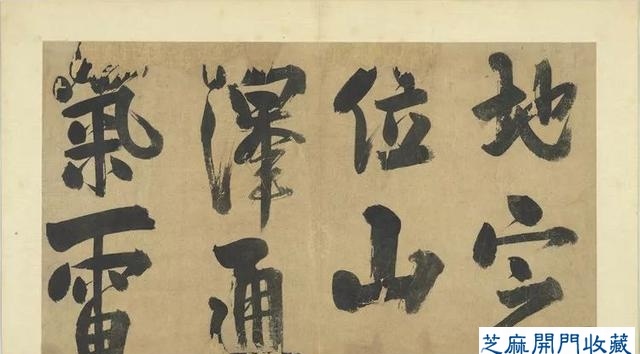 地定
位山
澤通
氣雷
芝麻開門收藏